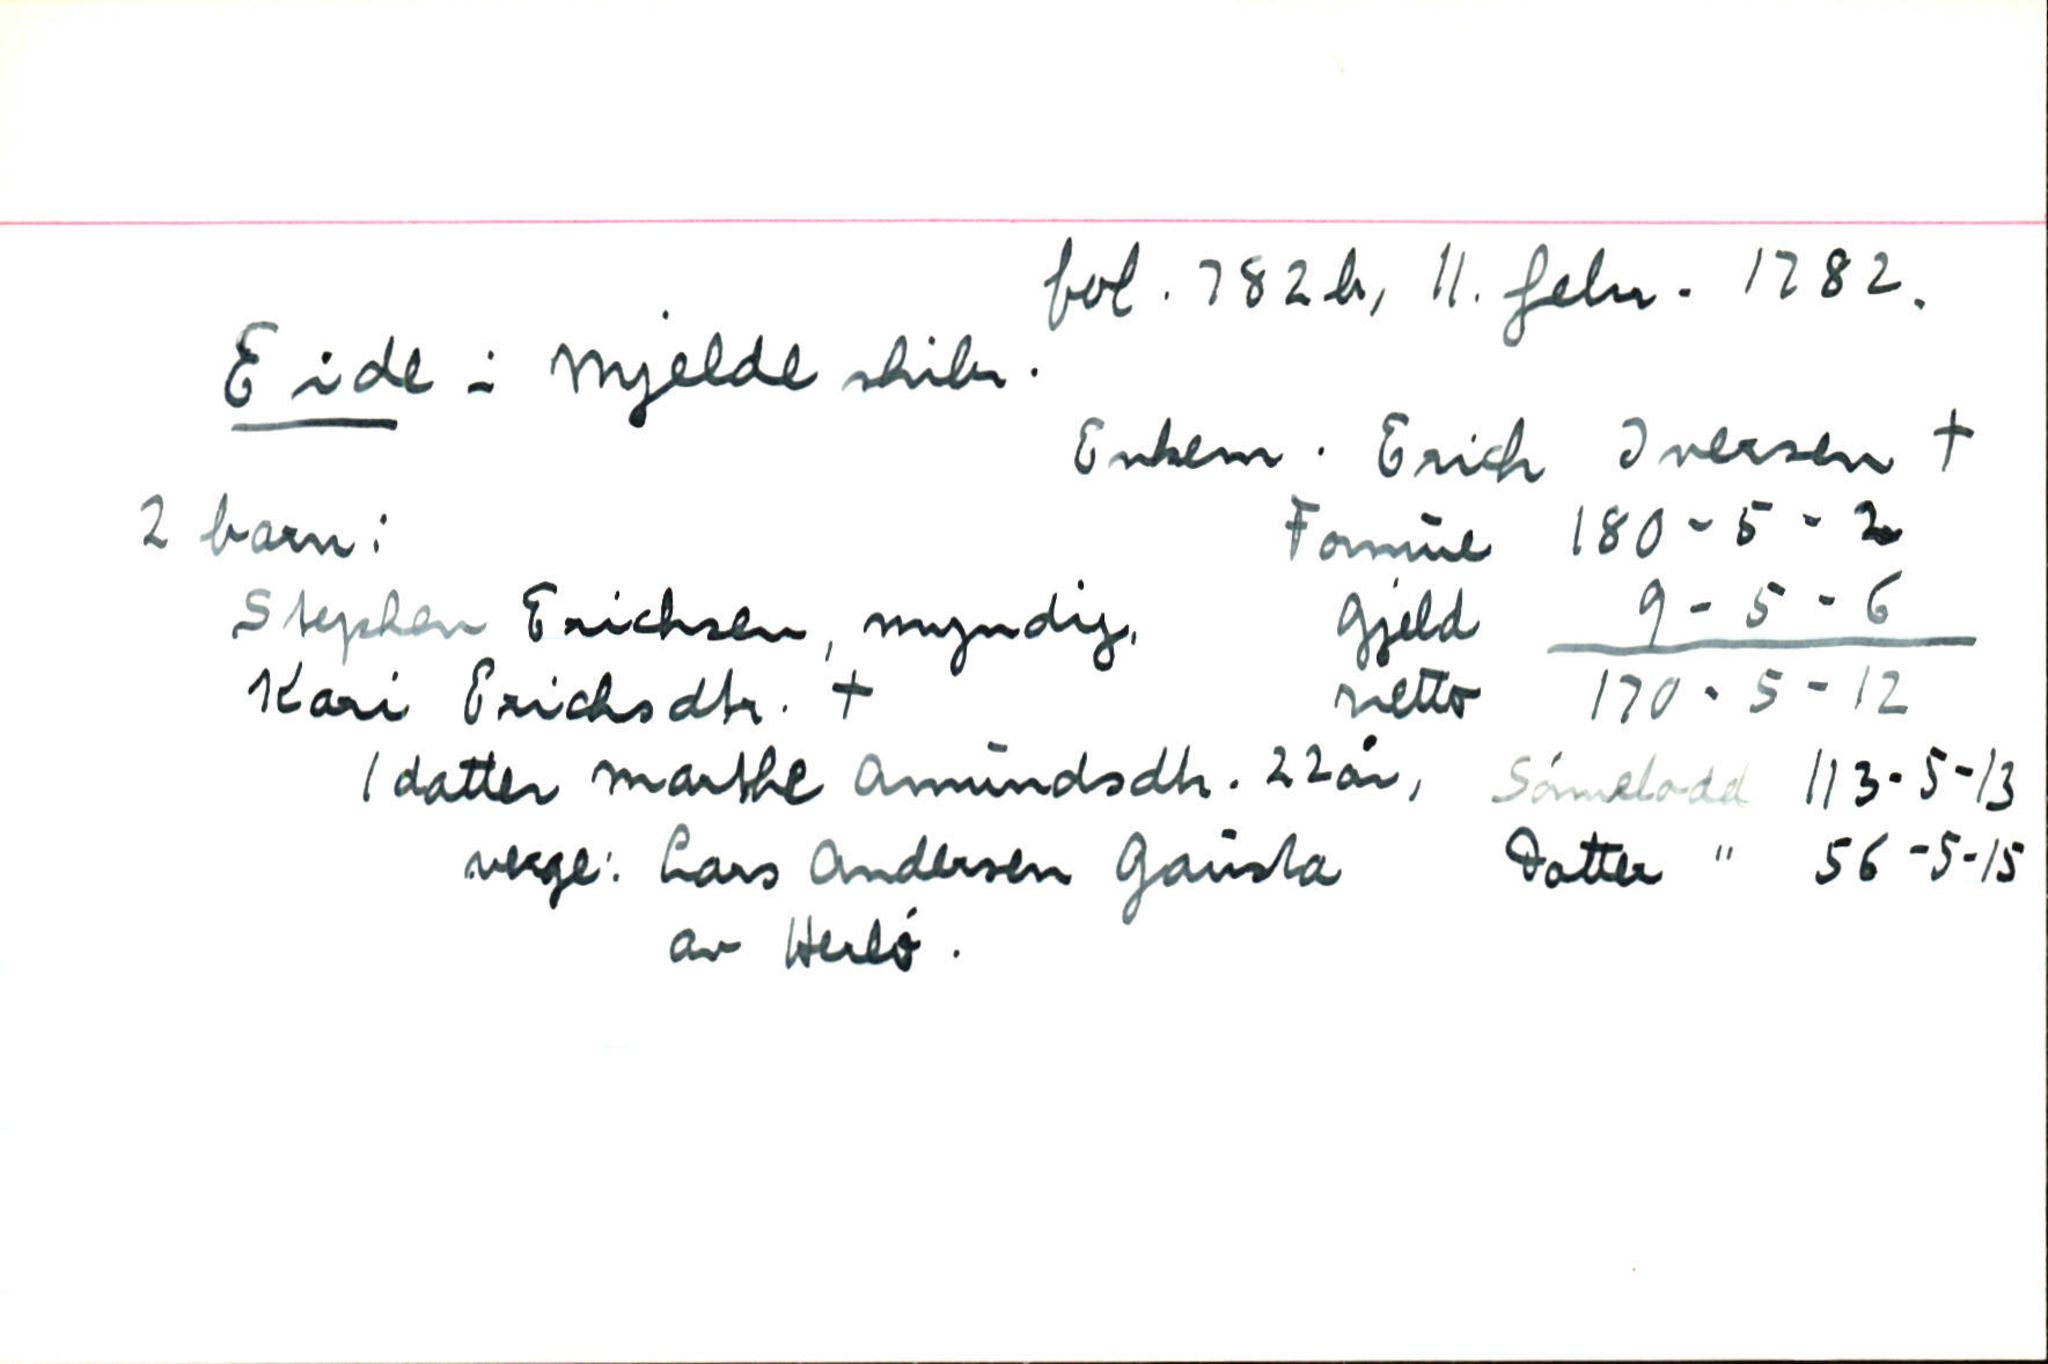 fol. 782b, 11. febr. 1782.
Eide i Mjelde skibr.
Enkem. Erich Iversen †
2 barn: Formue 180-5-2
Stephen Erichsen, myndig, Gjeld 9-5-6
Kari Erichsdtr. † netto 170-5-12
1 datter Marthe Amundsdtr. 22 år, Sønnelodd 113-5-13
verge: Lars Andersen Gausla Datter " 56-5-15
av Herlø.